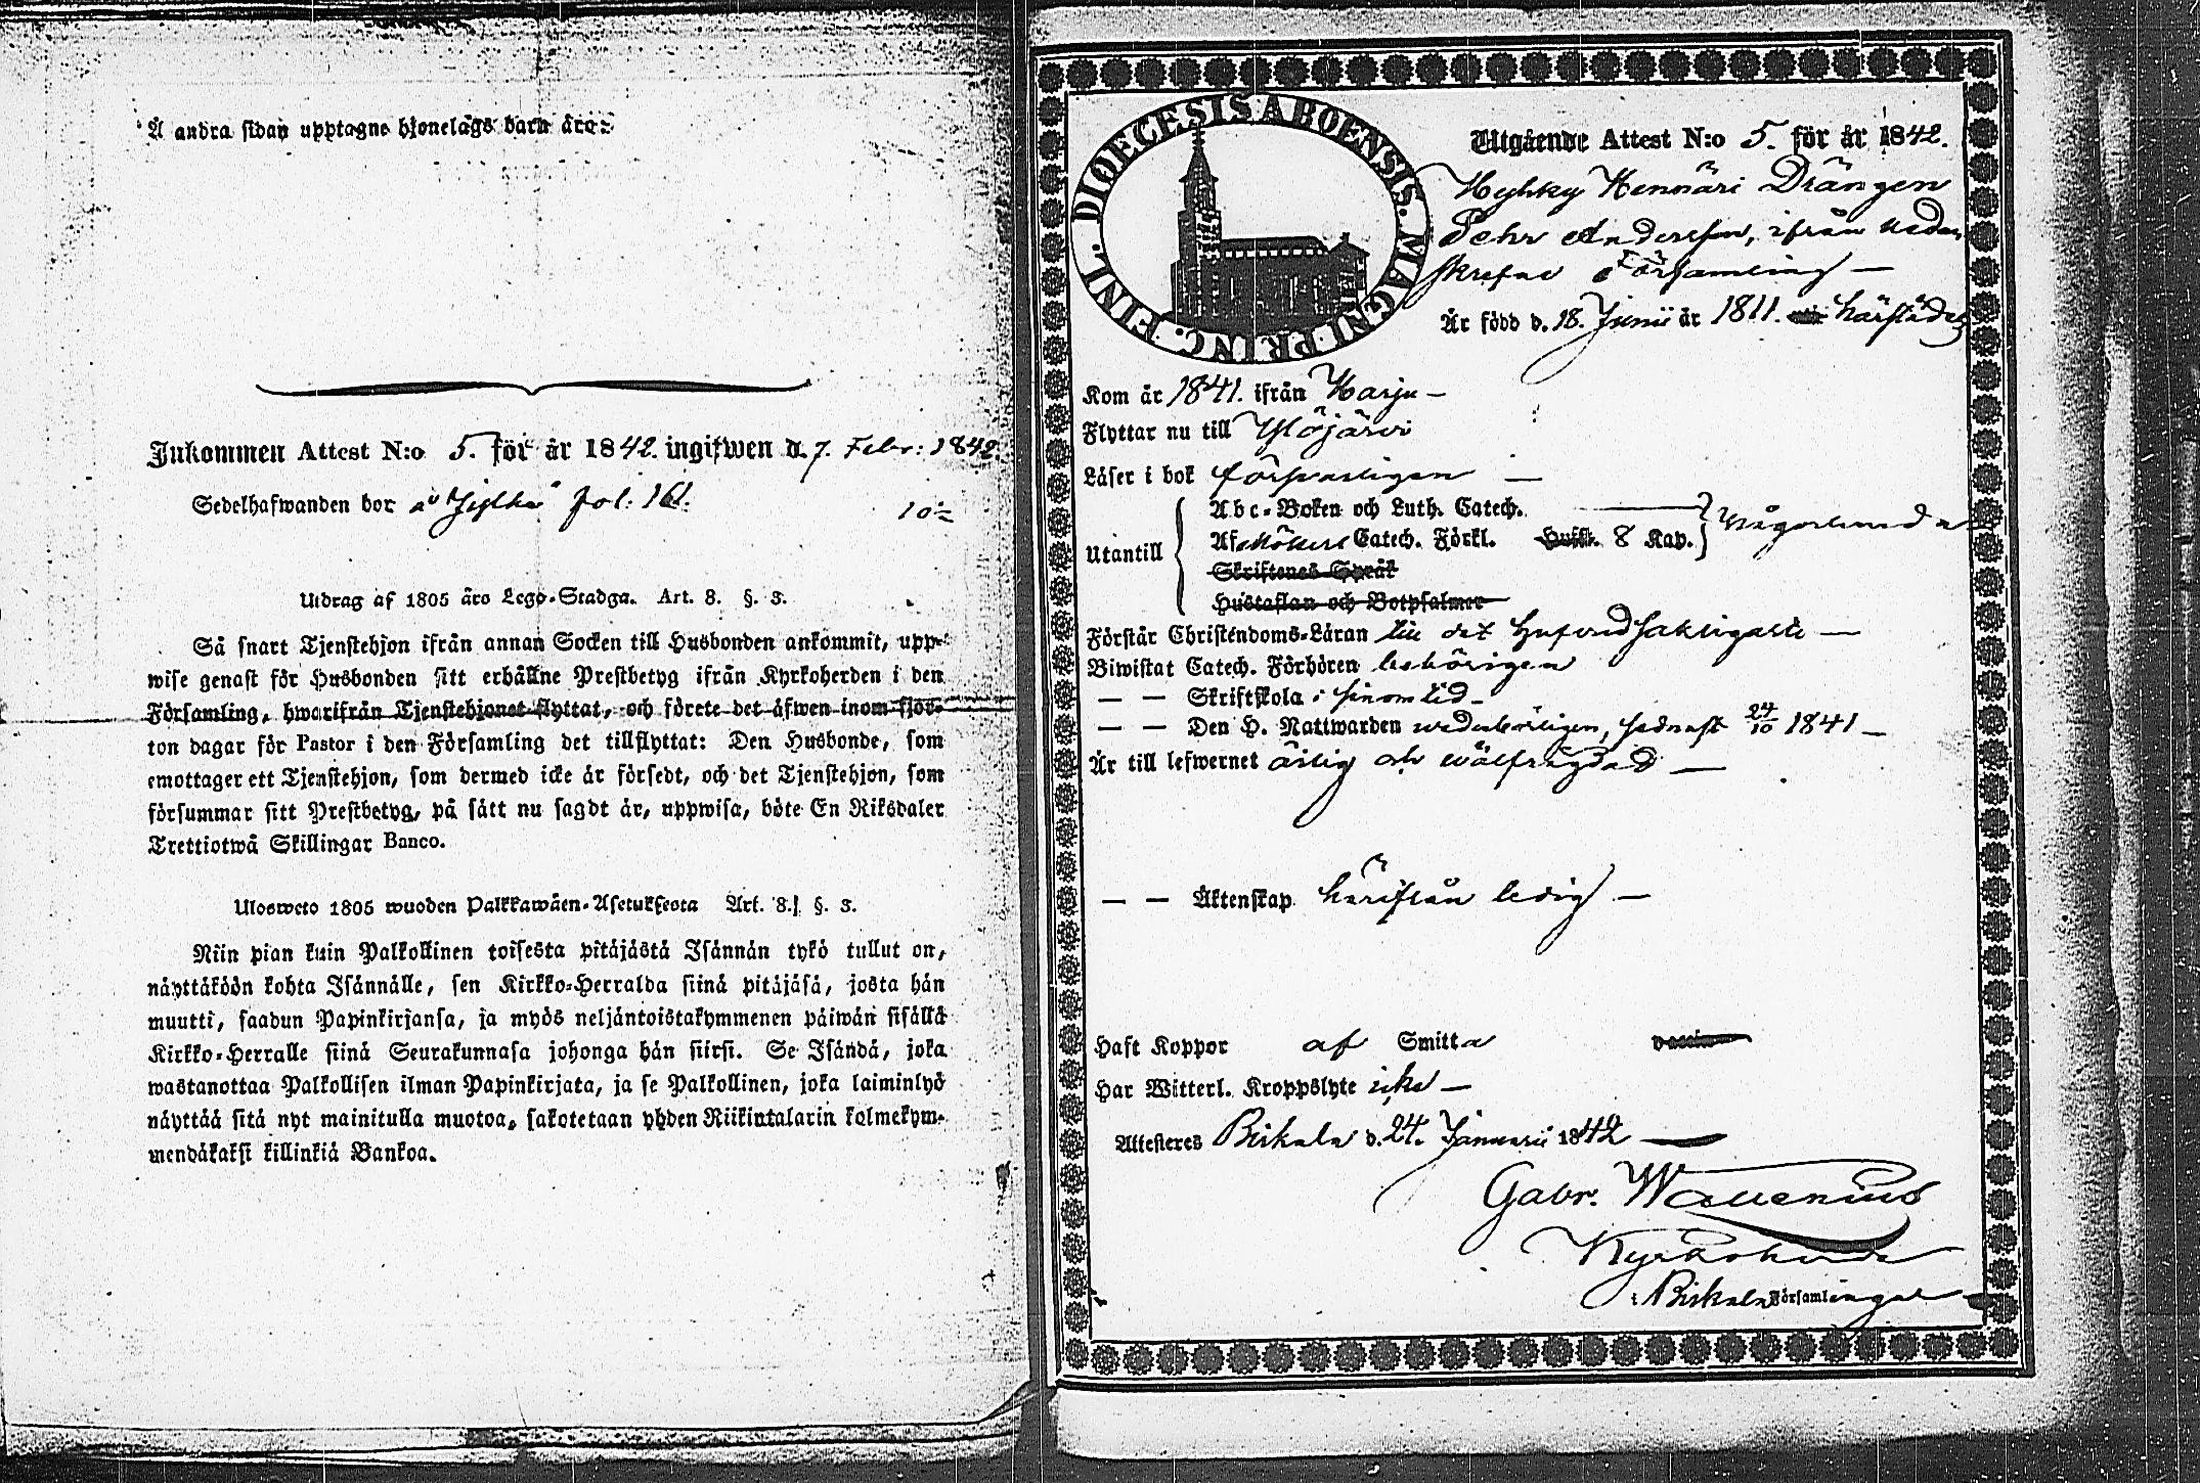 Å andra sidan upptagne hjonelags barn äro:
Inkommen Attest N:o 5. för år 1842. ingifwen d. 7. Febr: 1842.
Sedelhafwanden bor å Jylhä fol. 161.
Utdrag af 1805 års Lego-Stadga. Art. 8. §. 3.
Så snart Tjenstehjon ifrån annan Socken till Husbonden ankommit, upp-
wise genast för Husbonden sitt erhållne Prestbetyg ifrån Kyrkoherden i den
Församling, hwarifrån Tjenstehjonet flyttat, och förete det äfwen inom fjor-
ton dagar för Pastor i den Församling det tillflyttat: Den Husbonde, som
emottager ett Tjenstehjon, som dermed icke är försedt, och det Tjenstehjon, som
försummar sitt Prestbetyg, på sätt nu sagdt är, uppwisa, böte En Riksdaler
Trettiotwå Skillingar Banco.
Uloswete 1805 wuoden Palkkawäen-Asetuksesta Art. 8. §. 3.
Niin pian kuin Palkollinen toisesta pitäjästä Isännän tykö tullut on,
näyttäköön kohta Isännälle, sen Kirkko-Herralda siinä pitäjäsä, josta hän
muutti, saadun Papinkirjansa, ja myös neljäntoistakymmenen päiwän sisällä
Kirkko-Herralle siinä Seurakunnasa johonga hän siirsi. Se Isändä, joka
wastanottaa Palkollisen ilman Papinkirjata, ja se Palkollinen, joka laiminlyö
näyttää sitä nyt mainitulla muotoa, sakotetaan yhden Riikintalarin kolmekym-
mendäkaksi killinkiä Bankoa.
DIOECESIS ABOENSIS. MAGNI PRINC. FINL.
Utgående Attest N:o 5. för år 1842.
Hyhky Kennäri Drängen
Pehr Andersson, ifrån nedan
skrefne Församling —
Är född d. 18. Junii år 1811. härstädes
Kom år 1841. ifrån Harju —
Flyttar nu till Ylöjärvi
Läser i bok försvarligen —
Abc-Boken och Luth. Catech.
Utantill Af Möllers Catech. Förkl. Huslt. 8 Kap. någorlunda
Skriftenes Språk
Hustaflan och Botpsalmer
Förstår Christendoms-Läran till det hufvudsakligaste —
Biwistat Catech. Förhören behörigen
— — Skriftskola i sinom tid —
— — Den H. Nattwarden wederbörligen, sednast 24/10 1841 —
Är till lefwernet ärlig och wälfrägdad —
— — Äktenskap härifrån ledig —
Haft Koppor af Smitta vaccin
Har Witterl. Kroppslyte icke —
Attesteres Birkala d. 24. Januarii 1842 —
Gabr. Wallenius
Kyrkoherde
i Birkala Församlingar